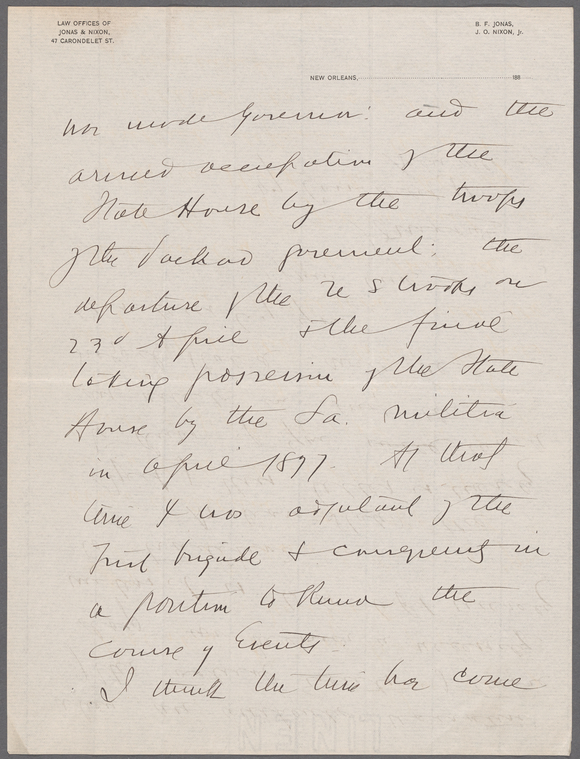 LAW OFFICES OF
JONAS & NIXON,
47 CARONDELET ST.
B. F. JONAS,
J. O. NIXON, Jr.
NEW ORLEANS, 188
was made Governor: and the
armed occupation of the
State House by the troops
of the Packard goverment: the
departure of the U S troops on
23d April & the final
taking possession of the State
House by the La. militia
in April 1877 At that
time I was adjutant of the
First brigade & consequently in
a position to know the
course of Events.
I think the time has come